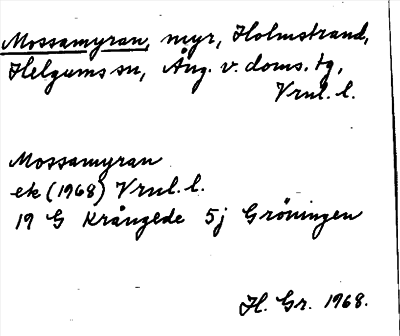 Mossamyran, myr, Holmstrand,
Helgums sn, Ång. v. doms. tg,
Vrnl. l.
Mossamyran
ek (1968) Vrnl. l.
19 G Krångede 5j Gröningen
H. Gr. 1968.